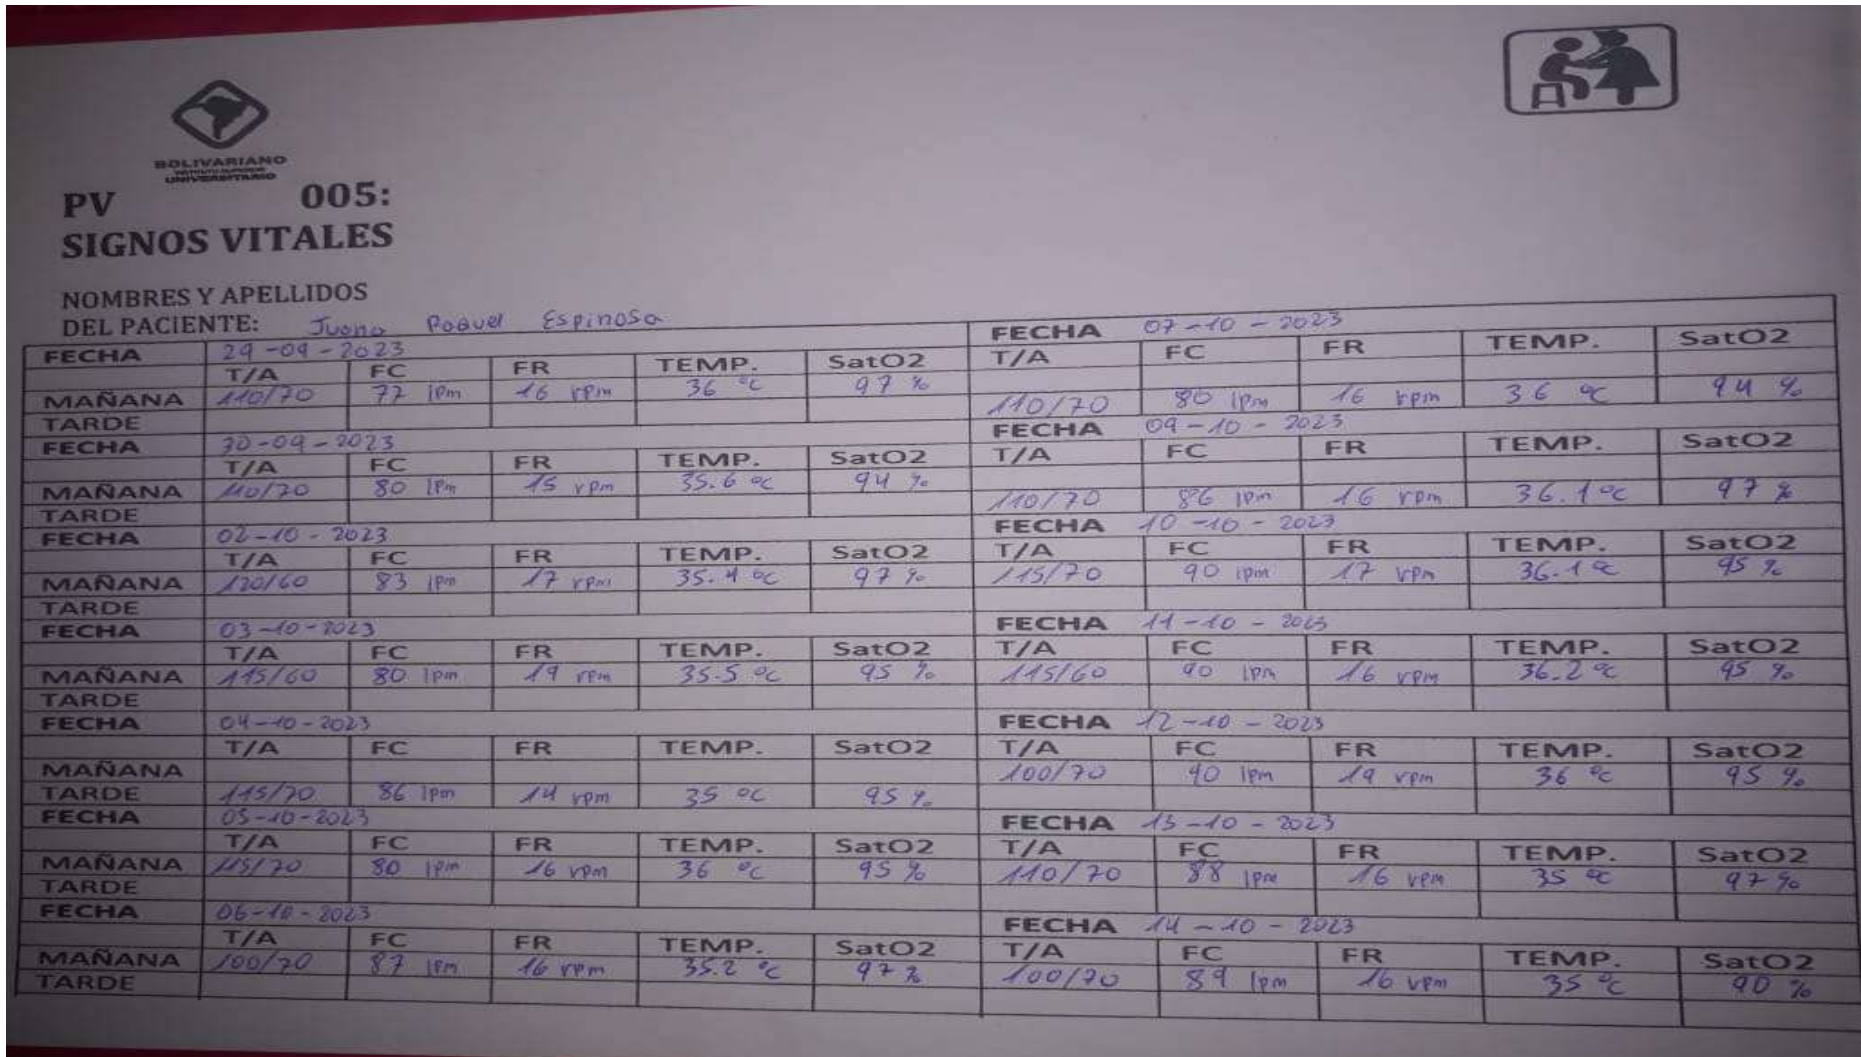 BOLIVARIANO
INSTITUTO SUPERIOR
UNIVERSITARIO
PV 005:
SIGNOS VITALES
NOMBRES Y APELLIDOS
DEL PACIENTE: Juana Raquel Espinosa
FECHA 29-09-2023
T/A FC FR TEMP. SatO2
MAÑANA 110/70 77 lpm 16 rpm 36 °C 97 %
TARDE
FECHA 30-09-2023
T/A FC FR TEMP. SatO2
MAÑANA 110/70 80 lpm 15 rpm 35.6 °C 94 %
TARDE
FECHA 02-10-2023
T/A FC FR TEMP. SatO2
MAÑANA 120/60 83 lpm 17 rpm 35.4 °C 97 %
TARDE
FECHA 03-10-2023
T/A FC FR TEMP. SatO2
MAÑANA 115/60 80 lpm 19 rpm 35.5 °C 95 %
TARDE
FECHA 04-10-2023
T/A FC FR TEMP. SatO2
MAÑANA
TARDE 115/70 86 lpm 14 rpm 35 °C 95 %
FECHA 05-10-2023
T/A FC FR TEMP. SatO2
MAÑANA 115/70 80 lpm 16 rpm 36 °C 95 %
TARDE
FECHA 06-10-2023
T/A FC FR TEMP. SatO2
MAÑANA 100/70 87 lpm 16 rpm 35.2 °C 97 %
TARDE
FECHA 07-10-2023
T/A FC FR TEMP. SatO2
110/70 80 lpm 16 rpm 36 °C 94 %
FECHA 09-10-2023
T/A FC FR TEMP. SatO2
110/70 86 lpm 16 rpm 36.1 °C 97 %
FECHA 10-10-2023
T/A FC FR TEMP. SatO2
115/70 90 lpm 17 rpm 36.1 °C 95 %
FECHA 11-10-2023
T/A FC FR TEMP. SatO2
115/60 90 lpm 16 rpm 36.2 °C 95 %
FECHA 12-10-2023
T/A FC FR TEMP. SatO2
100/70 90 lpm 19 rpm 36 °C 95 %
FECHA 13-10-2023
T/A FC FR TEMP. SatO2
110/70 88 lpm 16 rpm 35 °C 97 %
FECHA 14-10-2023
T/A FC FR TEMP. SatO2
100/70 89 lpm 16 rpm 35 °C 90 %